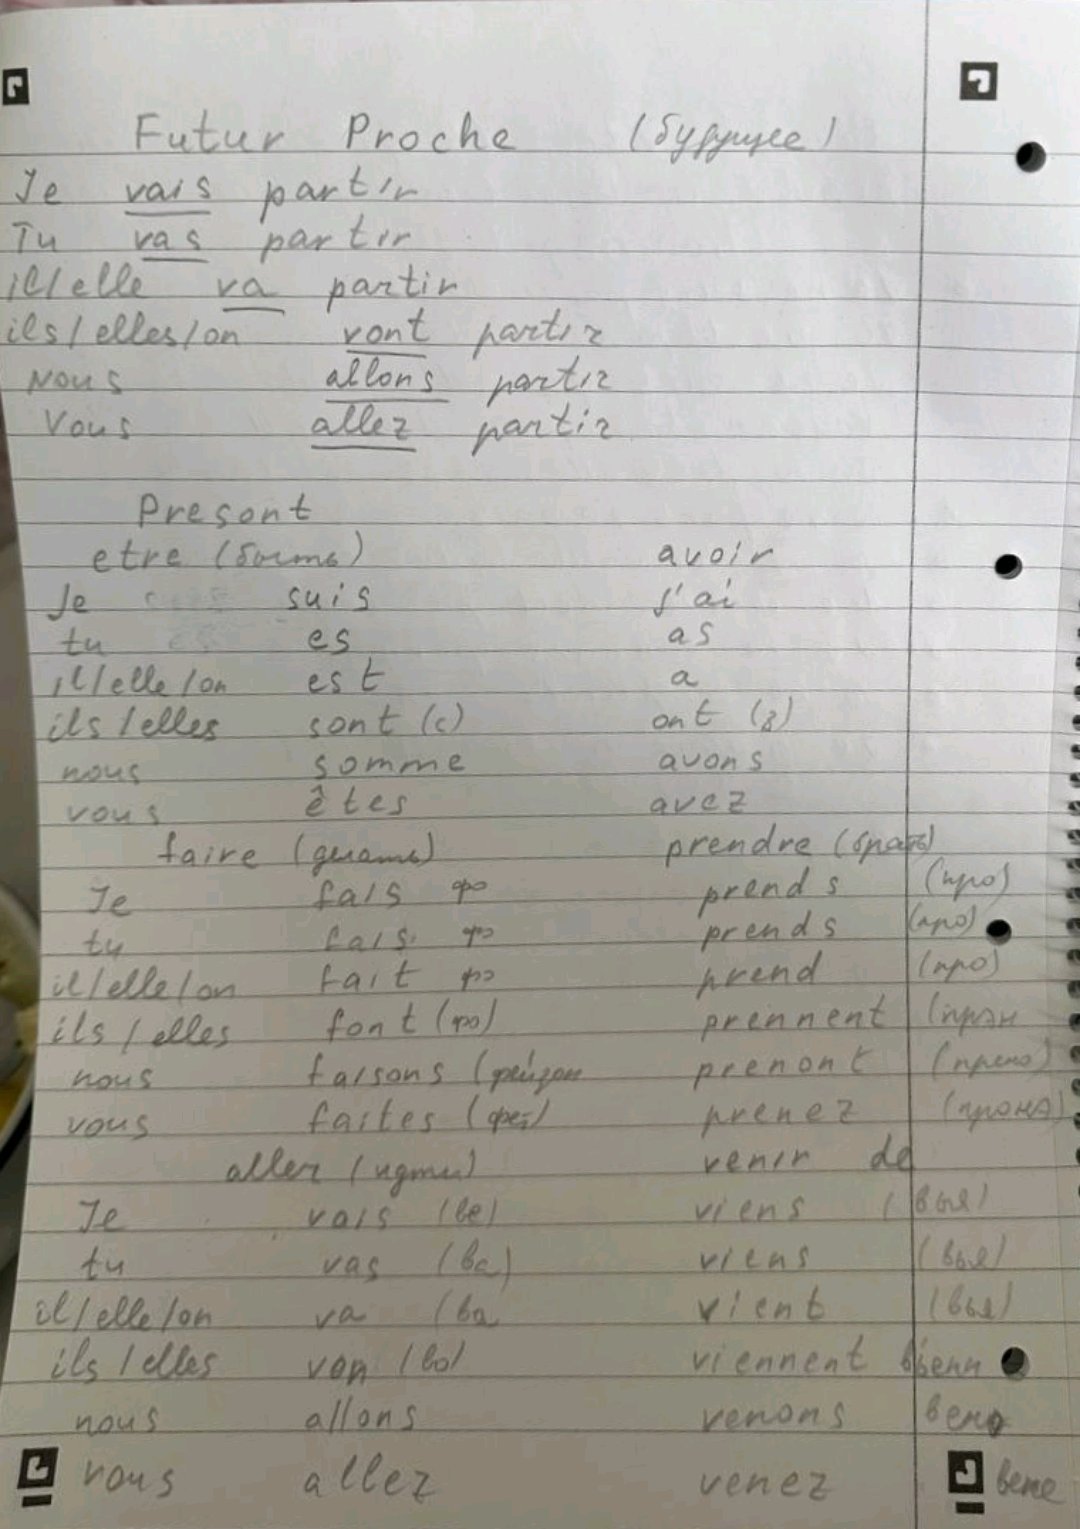 Futur Proche (будущее)
Je vais partir
Tu vas partir
il/elle va partir
ils/elles/on vont partir
Nous allons partir
Vous allez partir
Presont
etre (быть) avoir
Je suis j'ai
tu es as
il/elle/on est a
ils/elles sont (с) ont (з)
nous somme avons
vous êtes avez
faire (делать) prendre (брать)
Je fais фэ prends (про)
tu fais фэ prends (про)
il/elle/on fait фэ prend (про)
ils/elles font (фо) prennent (прэн
nous faisons prenont (прено)
vous faites prenez
aller (идти) venir de
Je vais (ве) viens (вья)
tu vas (ва) viens (вья)
il/elle/on va (ва vient (вья)
ils/elles von (во) viennent вьенн
nous allons venons вено
vous allez venez вене